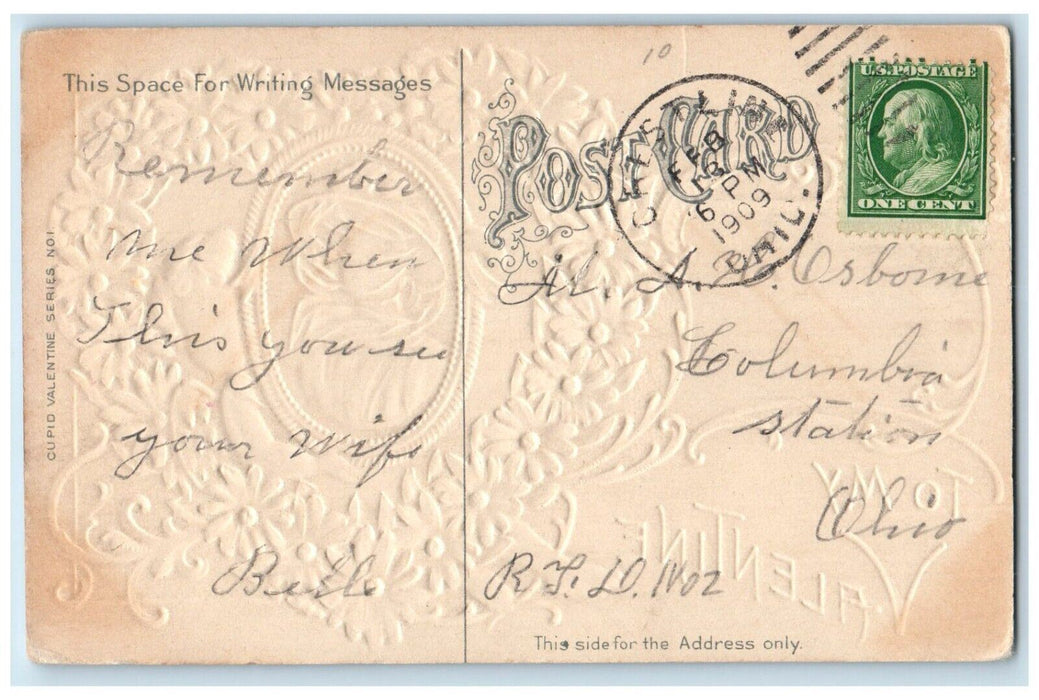 This Space For Writing Messages
Remember
me When
This you see
your wife
Belle
CUPID VALENTINE SERIES NO1
10
POST CARD
FEB
6 PM
1909
U.S. POSTAGE
ONE CENT
A. Osborne
Columbia
station
Ohio
R. F. D. No 2
This side for the Address only.
TO MY
VALENTINE